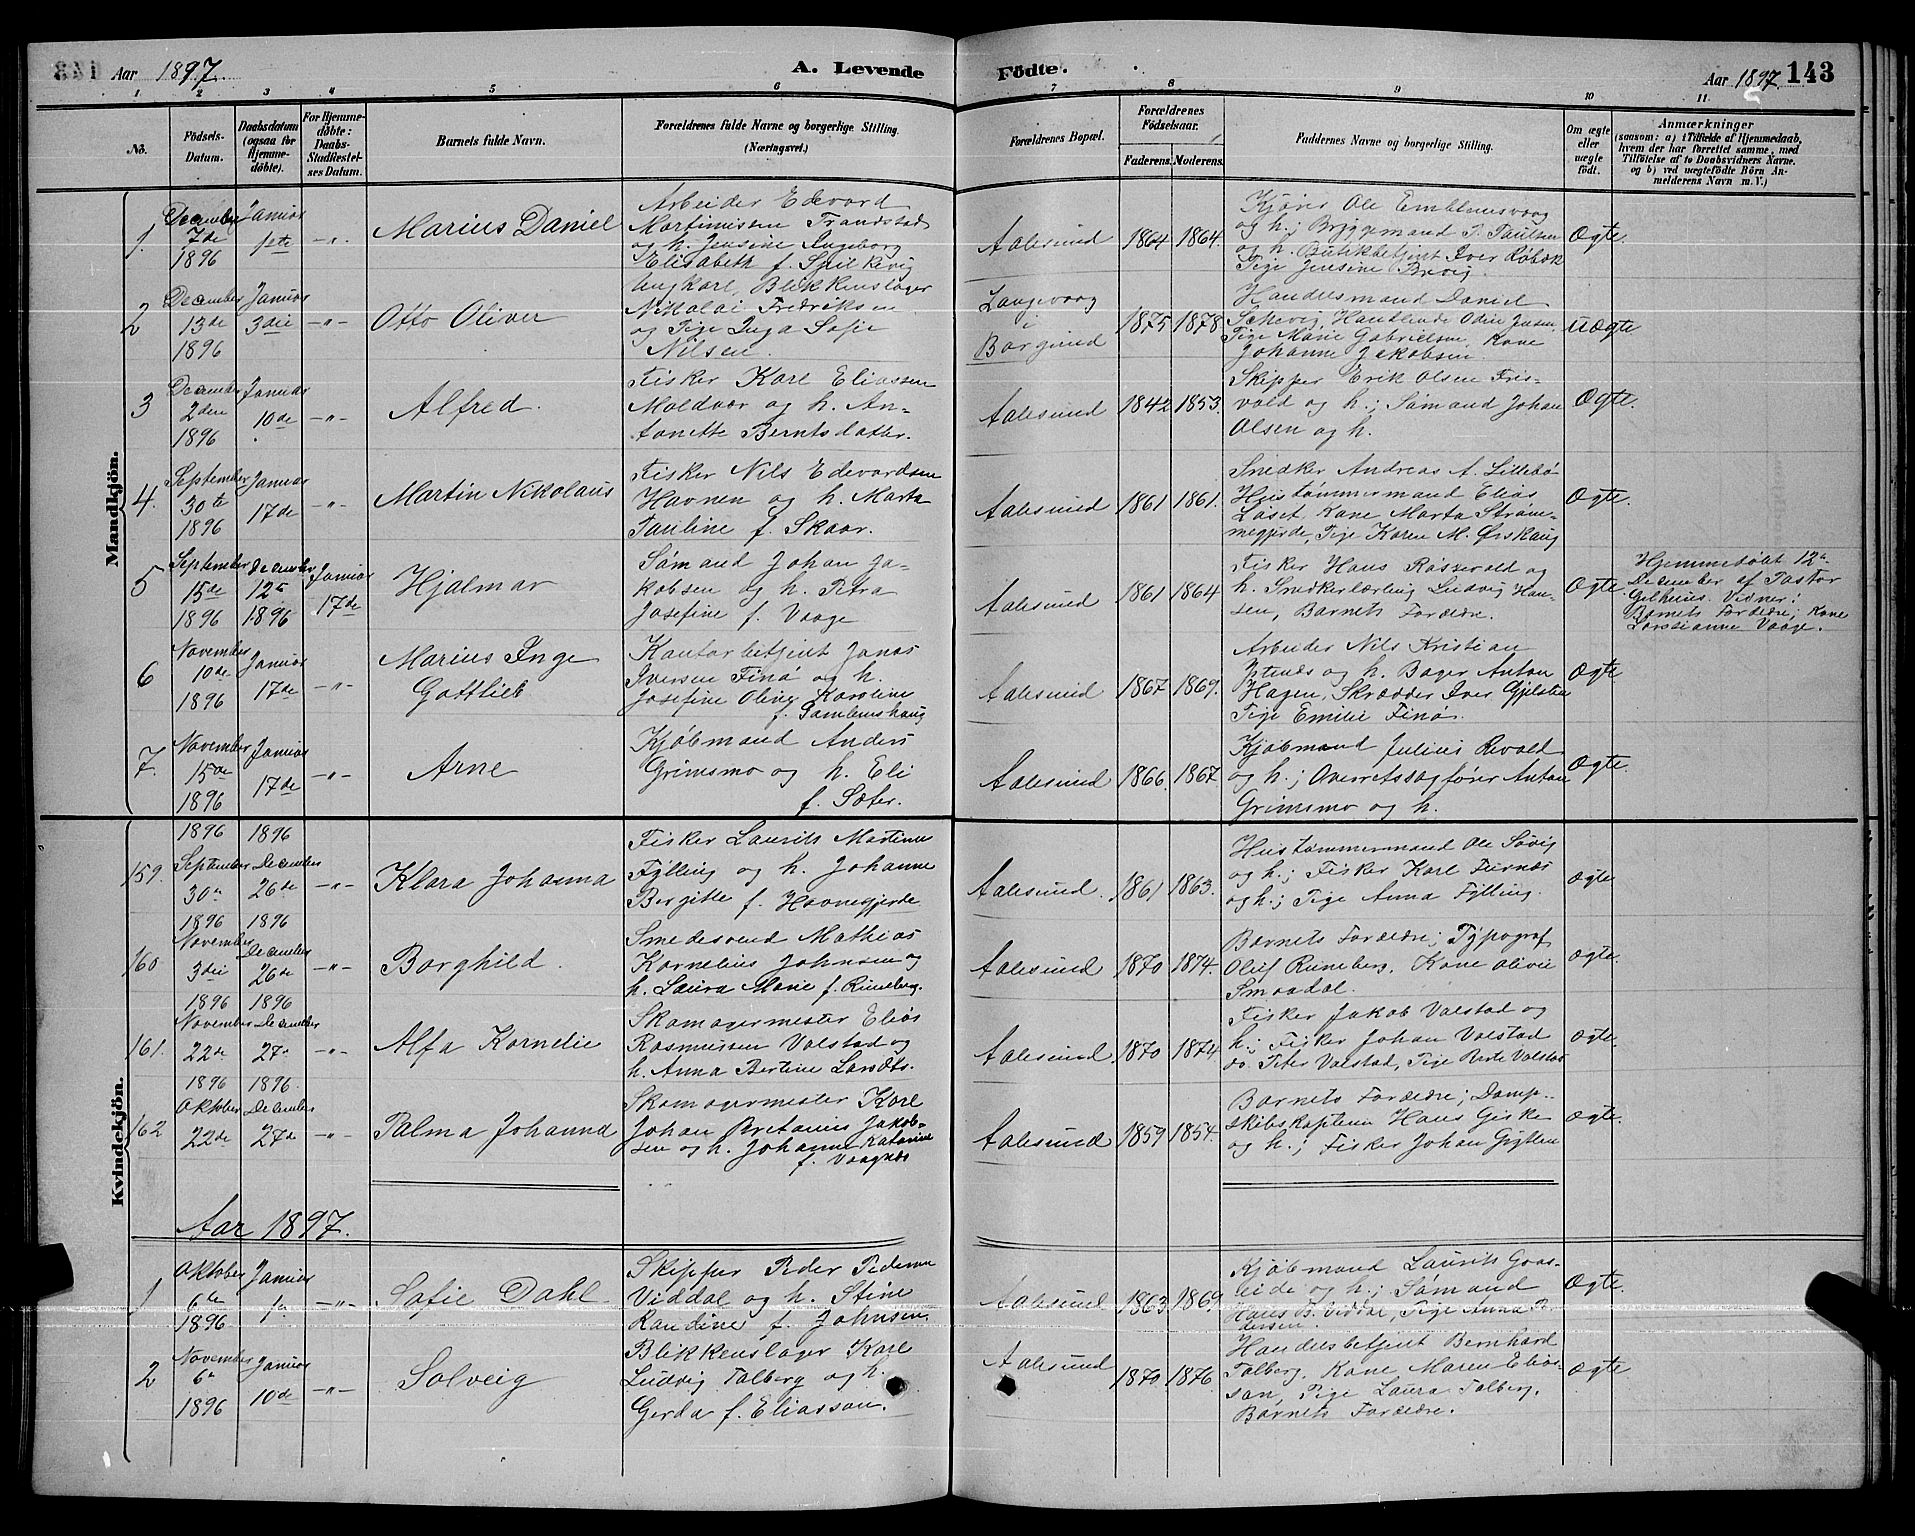 Aar 1897. A. Levende Fødte. Aar 1897. 143
1 2 3 4 5 6 7 8 9 10 11
No.
Fødsels-
Datum.
Daabsdatum
(ogsaa for
Hjemme-
døbte).
For Hjemme-
døbte:
Daabs-
Stadfæstel-
ses Datum.
Barnets fulde Navn.
Forældrenes fulde Navne og borgerlige Stilling.
(Næringsvei.)
Forældrenes Bopæl.
Forældrenes
Fødselsaar.
Faderens. Moderens.
Faddernes Navne og borgerlige Stilling.
Om ægte
eller
uægte
født.
Anmærkninger
(saasom: a) i Tilfælde af Hjemmedaab,
hvem der har forrettet samme, med
Tilføielse af to Daabsvidners Navne,
og b) ved uægtefødte Børn An-
melderens Navn m. V.)
Mandkjøn.
1.
December
7de
1896
Januar
1ste
-"-
Marius Daniel
Arbeider Edevard
Martinussen Trandstad
og h. Jensine Ingeborg
Elisabeth f. Spilkevig
Aalesund
1864 1864.
Kjører Ole Emblemsvaag
og h.; Bryggemand P. Paulsen
og h. Butikbetjent Iver Røbæk
Pige Jensine Brevig.
Ægte.
2
December
13de
1896
Januar
3die
-"-
Otto Oliver
Ungkarl, Blikkenslager
Nikolai Fredriksen
og Pige Inga Sofie
Nilsen.
Langevaag
i
Borgund
1875 1878
Handelsmand Daniel
Handlende Odin Jensen
Pige Marie Gabrielsen, Kone
Johanne Jakobsen
Uægte
3
December
2den
1896
Januar
10de
-"-
Alfred.
Fisker Karl Eliassen
Moldvær og h. An-
tonette Berntsdatter.
Aalesund
1842 1853.
Skipper Erik Olsen Fris-
vold og h.; Sømand Johan
Olsen og h.
Ægte.
4.
September
30te
1896
Januar
17de
-"-
Martin Nikolaus
Fisker Nils Edevardsen
Havnen og h. Marta
Pauline f. Skaar.
Aalesund
1861 1861.
Snedker Andreas A. Lillebø
Hustømmermand Elias
Løset Kone Marta Strøm-
megjerde, Pige Karen M. Ørskaug
Ægte.
5
September
15de
1896
December
12te
1896
Januar
17de
Hjalmar
Sømand Johan Ja-
kobsen og h. Petra
Josefine f. Vaage
Aalesund
1861 1864
Fisker Hans Røssevold og
h. Snedkerlærling Ludvig Han-
sen, Barnets Forældre.
Ægte.
Hjemmedøbt 12te
December af Pastor
Gelhius. Vidner:
Barnets Forældre; Kone
Larsianne Vaage.
6
November
10de
1896
Januar
17de
-"-
Marius Inge
Gottlieb
Kontorbetjent Jonas
Iversen Finø og h.
Josefine Oline Karoline
f. Gamlemshaug
Aalesund
1867 1869.
Arbeider Nils Kristian
og h. Bager Anton
Hagen, Skrædder Iver Gjelsten
Pige Emilie Finø.
Ægte
7.
November
15de
1896
Januar
17de
-"-
Arne
Kjøbmand Anders
Grimsmo og h. Eli
f. Sæter.
Aalesund
1866. 1867.
Kjøbmand Julius Revold
og h.; Overretssagfører Anton
Grimsmo og h.
Ægte.
Kvindekjøn.
159.
1896
September
30te
1896
December
26de
-"-
Klara Johanna
Fisker Laurits Martinus
Fylling og h. Johanne
Bergitte f. Havnegjerde
Aalesund.
1861 1863.
Hustømmermand Ole Søvig
og h.; Fisker Karl Furnæs
og h.; Pige Anna Fylling.
Ægte
160
1896
November
3die
1896
December
26de
-"-
Borghild.
Smedesvend Mathias
Kornelius Johnsen og
h. Laura Marie f. Runeberg.
Aalesund
1870 1874.
Barnets Forældre; Typograf
Oluf Runeberg, Kone Olivie
Smaadal.
Ægte.
161.
1896
November
22de
1896
December
27de
-"-
Alfa Kornelie
Skomagermester Elias
Rasmussen Valstad og
h. Anna Bertine Larsdtr.
Aalesund.
1870 1874.
Fisker Jakob Valstad og
h.; Fisker Johan Valstad
do. Peter Valstad, Pige Berte Valstad
Ægte.
162
1896
Oktober
22de
1896.
December
27de
-"-
Palma Johanna
Skomagermester Karl
Johan Bretanius Jakob-
sen og h. Johanne Katarine
f. Vaagnæs
Aalesund
1859 1854.
Barnets Forældre; Damp-
skibskaptein Hans Giske
og h.; Fisker Johan Gjøsten
Ægte.
Aar 1897.
1
Oktober
6te
1896
Januar
1ste
-"-
Sofie Dahl.
Skipper Peder Pedersen
Viddal og h. Stine
Randine f. Johnsen.
Aalesund
1863 1869
Kjøbmand Laurits Gaas-
eide og h.; Sømand
Hans B. Viddal, Pige Anna P-
dersen.
Ægte.
2
November
6te
1896
Januar
10de
-"-
Solveig
Blikkenslager Karl
Ludvig Talberg og h.
Gerda f. Eliasson.
Aalesund
1870 1876
Handelsbetjent Bernhard
Talberg, Kone Maren Elias-
son, Pige Laura Talberg,
Barnets Forældre.
Ægte